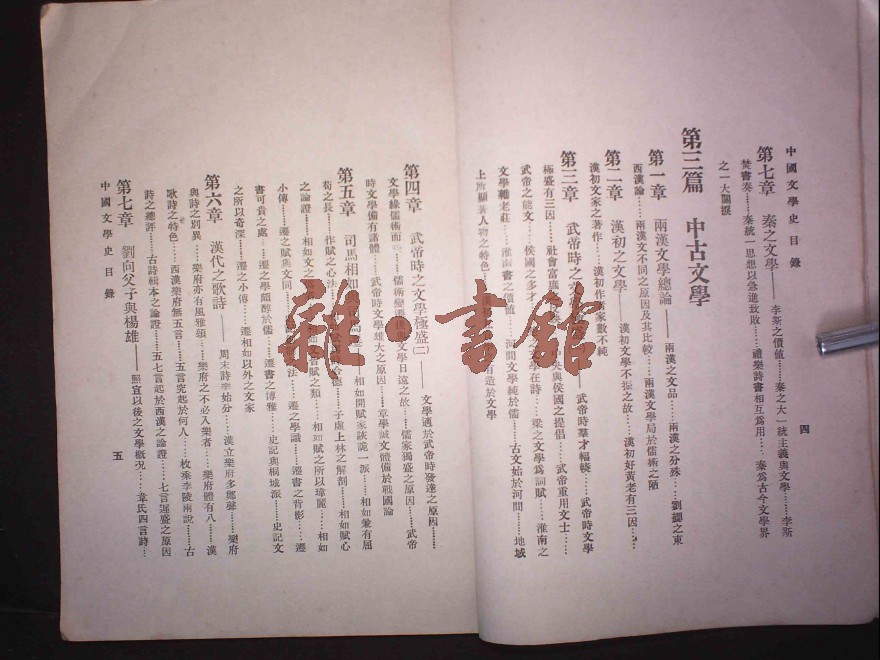 中國文學史目錄
四
第七章　秦之文學——李斯之價値……秦之大一統主義與文學……李斯
焚書奏……秦統一思想以急進致敗……禮樂詩書相互爲用……秦爲古今文學界
之一大關捩
第三篇　中古文學
第一章　兩漢文學總論——兩漢之文品……兩漢之分殊……劉勰之東
西漢論……兩漢文不同之原因及其比較……兩漢文學局於儒術之陋
第二章　漢初之文學——漢初文學不振之故……漢初好黃老有三因……
漢初文家之著作……漢初作者家數不純
第三章　武帝時之文學——武帝時羣才輻輳……武帝時文學
極盛有三因……社會富庶 與侯國之提倡……武帝重用文士……
武帝之能文……侯國之多才 文學在詩……梁之文學爲詞賦……淮南之
文學雜老莊……淮南書之價値……河間文學純於儒……古文始於河間……地域
上所顯著人物之特色 有造於文學
第四章　武帝時之文學極盛(二)——文學適於武帝時發達之原因……
文學緣儒術而 儒術變遷 文學日遠之故……儒家獨盛之原因……武帝
時文學備有諸體……武帝時文學雄大之原因……章學誠文體備於戰國論
第五章　司馬相如 相如開賦家詼詭一派……相如兼有屈
荀之長……作賦之心法 子虛上林之解剖……相如賦心
之論證……相如文之 賦之類……相如賦之所以瑋麗……相如
小傳……遷之賦與文同 法……遷之學識……遷書之背影……遷
書可貴之處……遷之學頗醇於儒……遷書之博雅……史記與桐城派……史記文
之所以奇深……遷之小傳……遷相如以外之文家
第六章　漢代之歌詩——周末詩樂始分……漢立樂府多鄭聲……樂府
與詩之別異……樂府亦有風雅頌……樂府之不必入樂者……樂府體有八……漢
歌詩之特色……西漢樂府無五言……五言究起於何人……枚乘李陵兩說……古
詩之總評……古詩輯本之論證……五七言起於西漢之論證……七言遲盛之原因
第七章　劉向父子與楊雄——照宣以後之文學概況……韋氏四言詩……
中國文學史目錄
五
雜書館